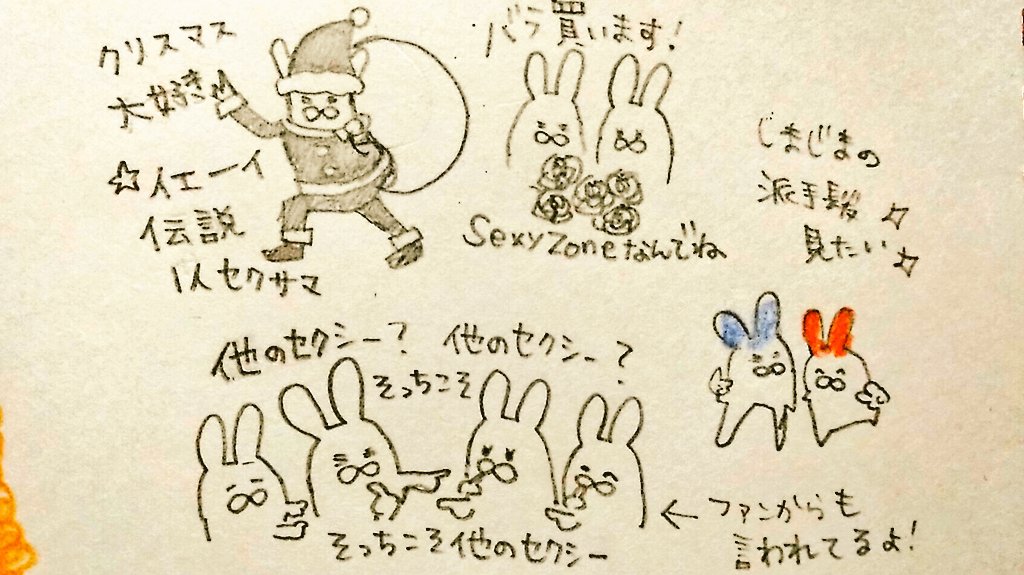 クリスマス
大好き
☆イエーイ
伝説
1人セクサマ
バラ買います!
Sexy Zoneなんでね
じまじまの
派手髪
見たい
他のセクシー? 他のセクシー?
そっちこそ
そっちこそ他のセクシー
←ファンからも
言われてるよ!